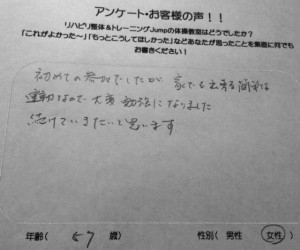 アンケート・お客様の声！！
リハビリ整体&トレーニングJumpの体操教室はどうでしたか？
「これがよかった～」「もっとこうしてほしかった」などあなたが思ったことを素直に何でも
お書きください！
初めての参加でしたが、家でも出来る簡単な
運動なので大変勉強になりました
続けていきたいと思います
年齢( 57 歳)　性別( 男性　女性 )